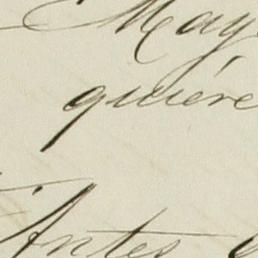 May
quiére
Antes